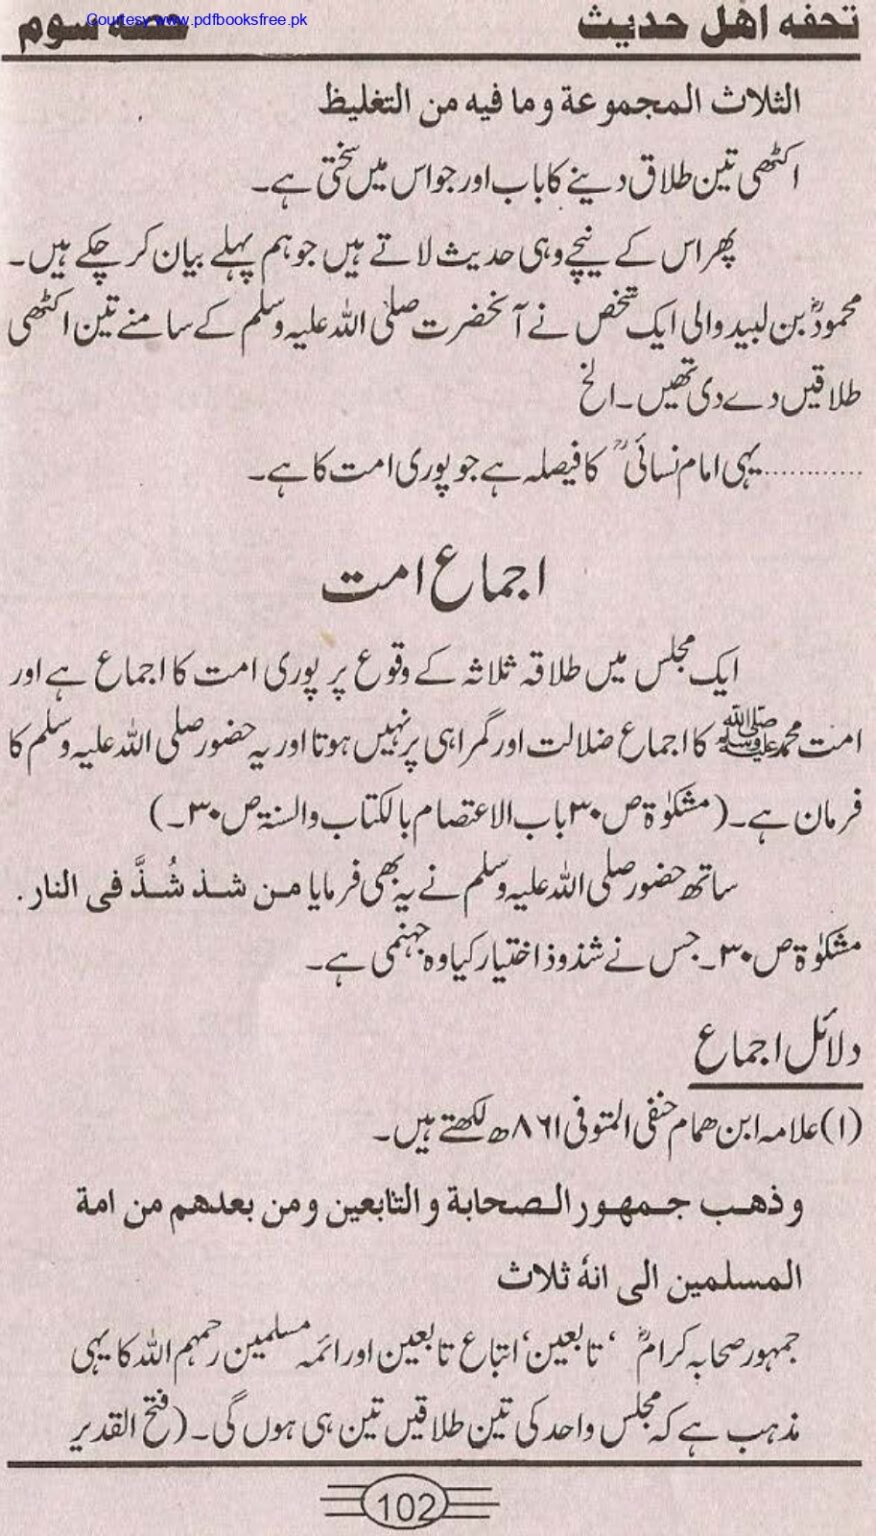 تحفه اهل حديث
حصه سوم
Courtesy www.pdfbooksfree.pk
الثلاث المجموعة وما فيه من التغليظ
اکٹھی تین طلاق دینے کا باب اور جو اس میں سختی ہے۔
پھر اس کے نیچے وہی حدیث لاتے ہیں جو ہم پہلے بیان کر چکے ہیں۔
محمودؓ بن لبید والی ایک شخص نے آنحضرت صلی اللہ علیہ وسلم کے سامنے تین اکٹھی
طلاقیں دے دی تھیں۔ الخ
............یہی امام نسائیؒ کا فیصلہ ہے جو پوری امت کا ہے۔
اجماع امت
ایک مجلس میں طلاقہ ثلاثہ کے وقوع پر پوری امت کا اجماع ہے اور
امت محمد ﷺ کا اجماع ضلالت اور گمراہی پر نہیں ہوتا اور یہ حضور صلی اللہ علیہ وسلم کا
فرمان ہے۔ (مشکوٰۃ ص ۳۰ باب الاعتصام بالکتاب والسنۃ ص ۳۰۔)
ساتھ حضور صلی اللہ علیہ وسلم نے یہ بھی فرمایا من شذ شُذَّ فی النار.
مشکوٰۃ ص ۳۰۔ جس نے شذوذ اختیار کیا وہ جہنمی ہے۔
دلائل اجماع
(۱) علامہ ابن ھمام حنفی المتوفی ۸۶۱ھ لکھتے ہیں۔
و ذهب جمهور الصحابة و التابعين و من بعدهم من امة
المسلمين الى انهٔ ثلاث
جمہور صحابہ کرامؓ ‘ تابعین‘ اتباع تابعین اور ائمہ مسلمین رحمہم اللہ کا یہی
مذہب ہے کہ مجلس واحد کی تین طلاقیں تین ہی ہوں گی۔ (فتح القدیر
102